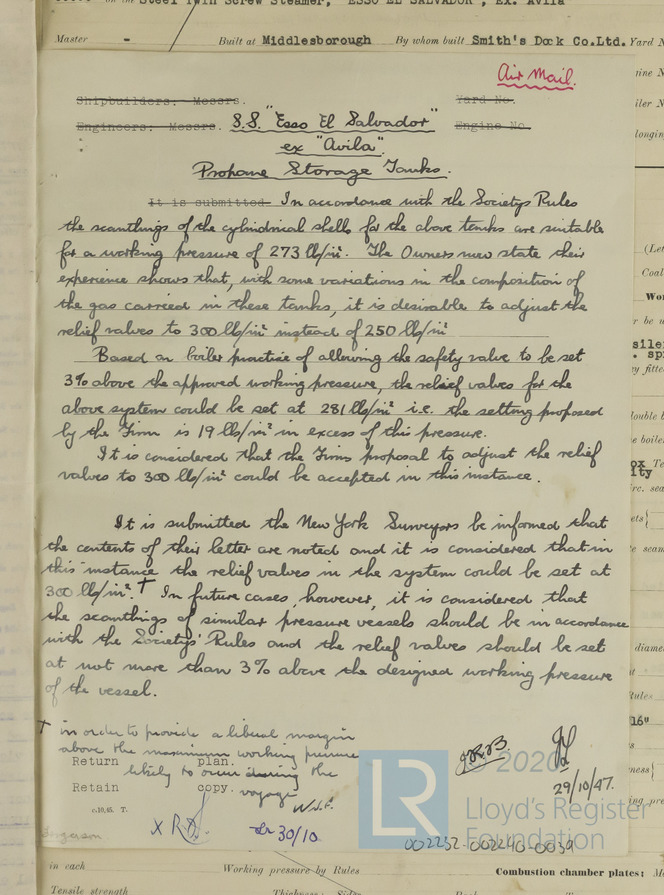 on the Steel Twin Screw Steamer, "ESSO EL SALVADOR", Ex. Avila
Master - Built at Middlesborough By whom built Smith's Dock Co.Ltd. Yard N
Air Mail.
Shipbuilders: Messrs. Yard No.
Engineers: Messrs. S.S. "Esso El Salvador" Engine No.
ex "Avila".
Propane Storage Tanks.
It is submitted In accordance with the Society's Rules
the scantlings of the cylindrical shells for the above tanks are suitable
for a working pressure of 273 lb/in². The Owners now state their
experience shows that, with some variations in the composition of
the gas carried in these tanks, it is desirable to adjust the
relief valves to 300 lbs/in² instead of 250 lbs/in²
Based on boiler practice of allowing the safety valve to be set
3% above the approved working pressure, the relief valves for the
above system could be set at 281 lbs/in² i.e. the setting proposed
by the Firm is 19 lbs/in² in excess of this pressure.
It is considered that the Firms proposal to adjust the relief
values to 300 lbs/in² could be accepted in this instance.
It is submitted the New York Surveyors be informed that
the contents of their letter are noted and it is considered that in
this instance the relief valves in the system could be set at
300 lbs/in².† In future cases, however, it is considered that
the scantlings of similar pressure vessels should be in accordance
with the Society's Rules and the relief valves should be set
at not more than 3% above the designed working pressure
of the vessel.
† in order to provide a liberal margin
above the maximum working pressure
likely to occur during the
voyage
Return plan.
Retain copy.
W.J.F.
c.10,45. T.
30/10
29/10/47.
2020
LR
Lloyd's Register
Foundation
002232-002240-0039
in each Working pressure by Rules Combustion chamber plates:
Tensile strength